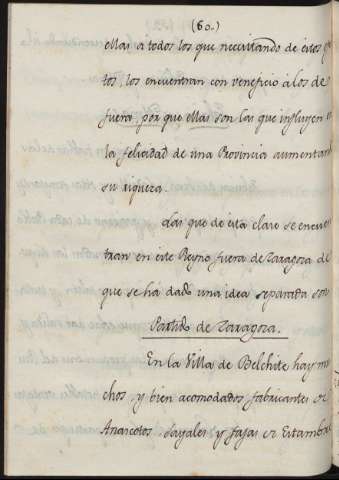 (60.)
ellas a todos los que necesitando de estos
tos, los encuentran con veneficio á los de
fuera, por que ellas son las que influyen
la felicidad de una Provincia aumentan
su riqueza.
Las que de esta clase se encuen
tran en este Reyno fuera de Zaragoza de
que se ha dado una idea separada son
Partido de Zaragoza.
En la Villa de Belchite hay mu
chos, y bien acomodados fabricantes
Anascotes, Sayales y fajas Estambre